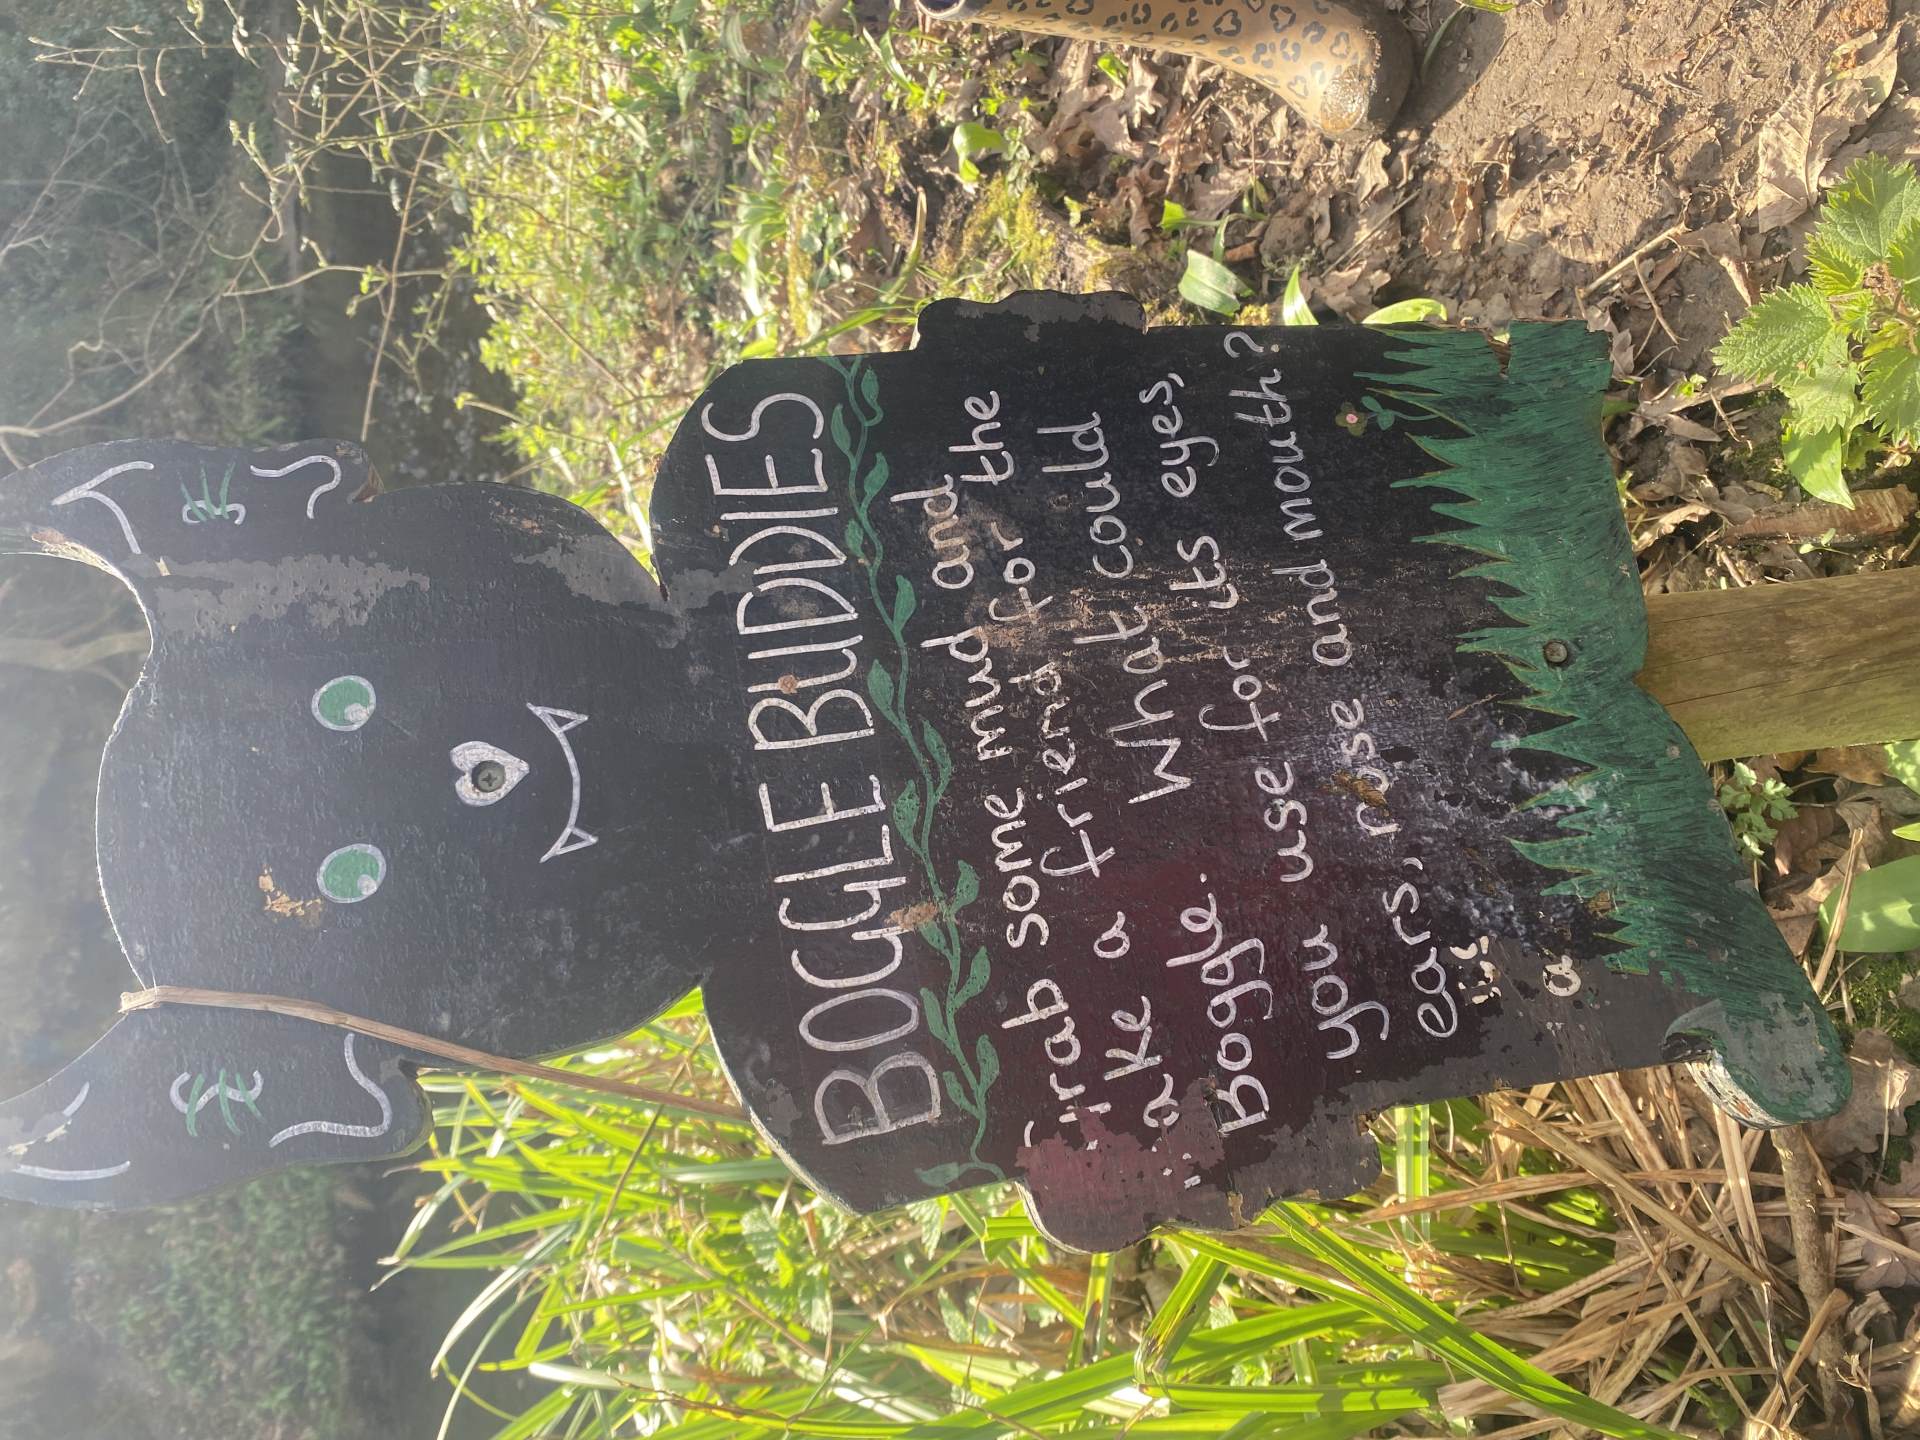 BOGGLE BUDDIES
Grab some mud and
make a friend for the
Boggle. What could
you use for its eyes,
ears, nose and mouth?